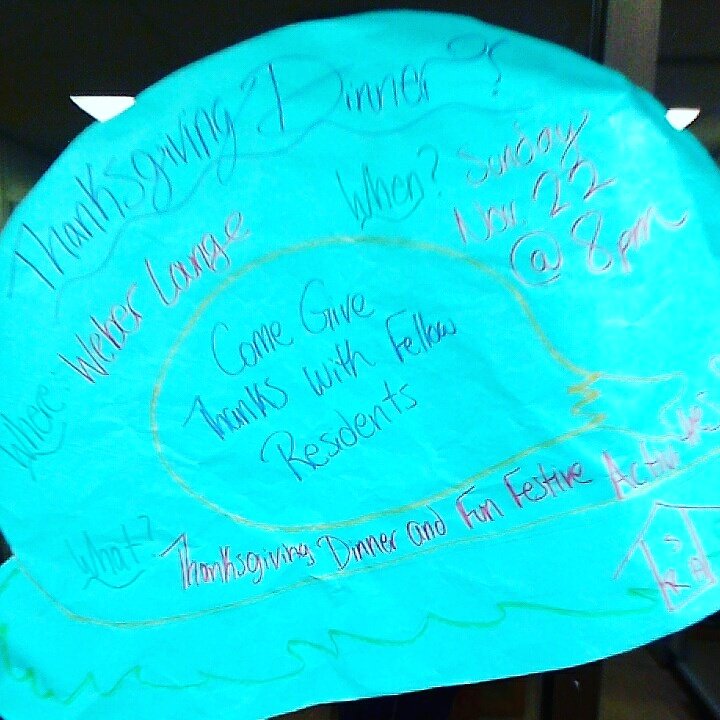 Thanksgiving Dinner?
When? Sunday
Nov. 22
@ 8pm
Where: Weber Lounge
Come Give
Thanks With Fellow
Residents
What? Thanksgiving Dinner and Fun Festive Activities